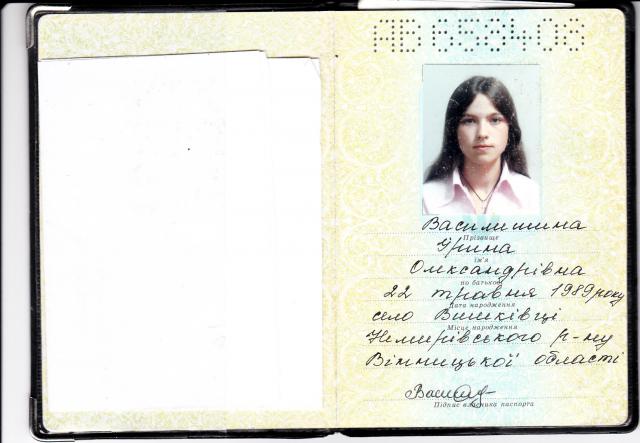 АВ 658408
Василишина
Прізвище
Ірина
ім'я
Олександрівна
по батькові
22 травня 1989 року
Дата народження
село Вишківці
Місце народження
Немирівського р-ну
Вінницької області
Підпис власника паспорта